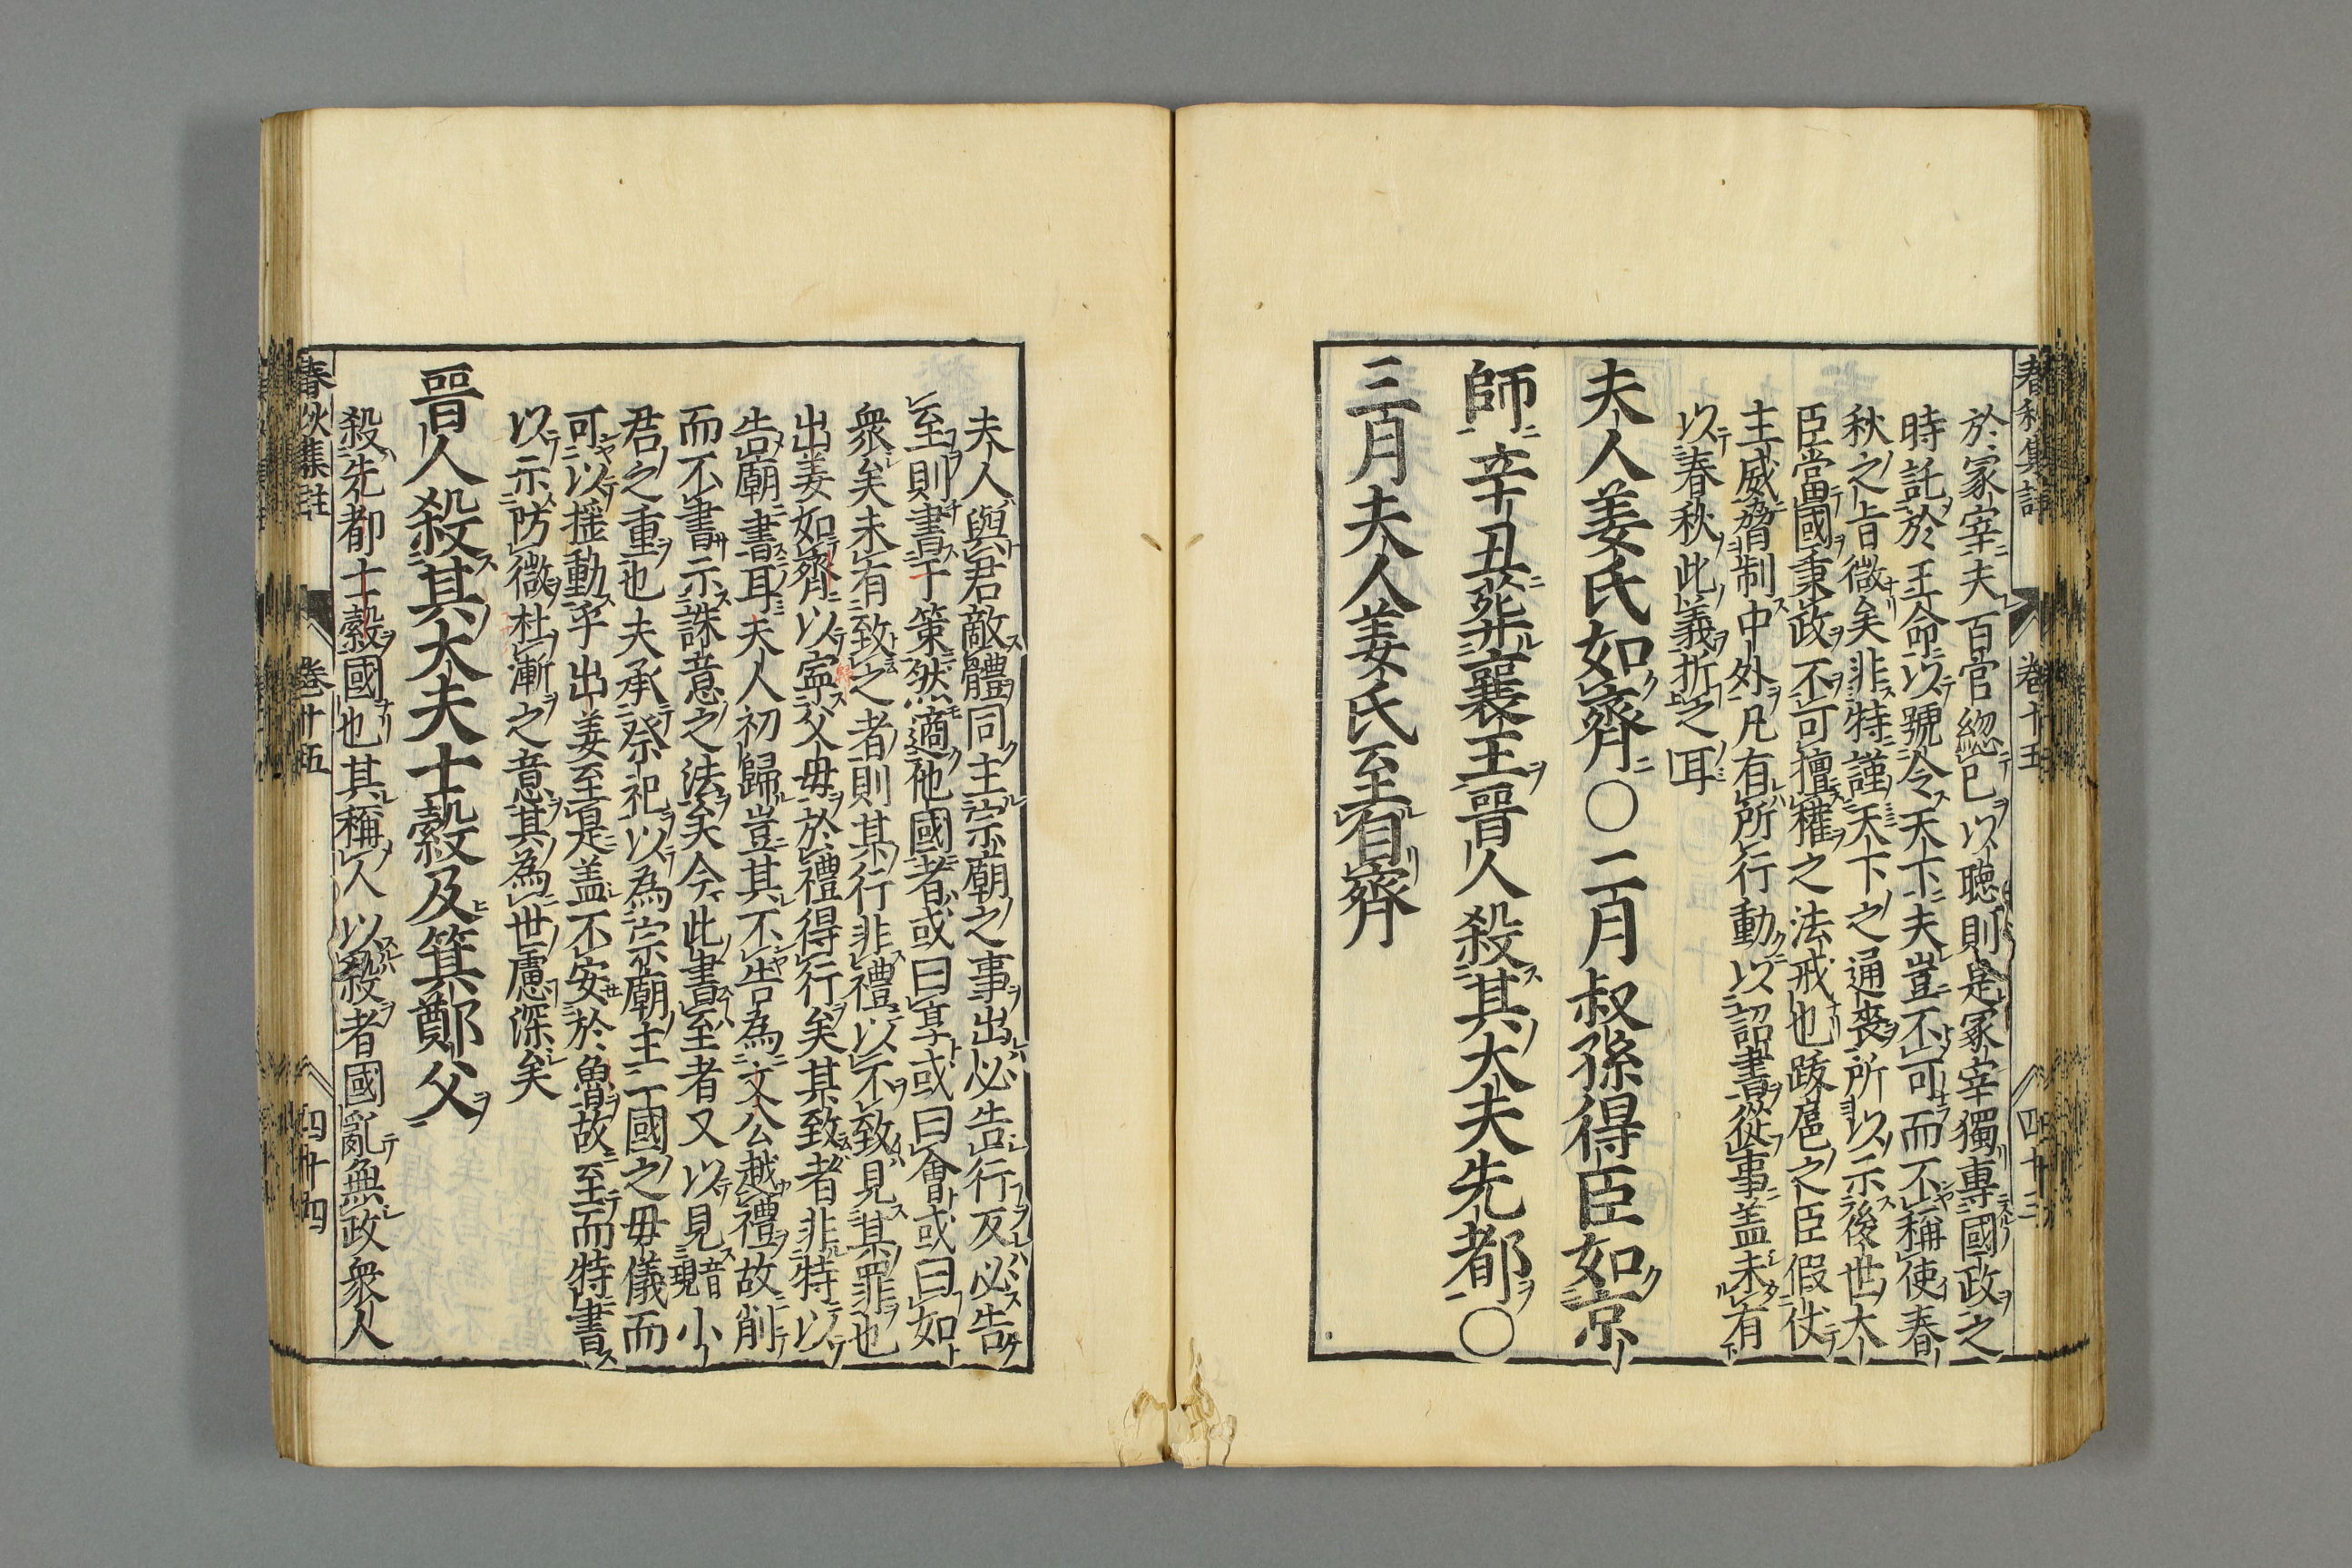 春秋集註 卷十五 四十三
於冢宰夫百官緫已以聴則是冢宰獨專國政之
時託於王命以號令天下夫豈不可而不稱使春
秋之旨微矣非特謹天下之通喪所以示後世大
臣當國秉政不可擅權之法戒也跋扈之臣假仗
主威脅制中外凡有所行動以詔書從事盖未有
以春秋此義折之耳
夫人姜氏如齊〇二月叔孫得臣如京
師辛丑葬襄王晉人殺其大夫先都〇
三月夫人姜氏至自齊
夫人與君敵體同主宗廟之事出必告行反必告
至則書于策然適他國者或曰享或曰會或曰如
衆矣未有致之者則其行非禮以不致見其罪也
出姜如齊以寧父母於禮得行矣其致者非特以
告廟書耳夫人初歸豈其不告為文公越禮故削
而不書示誅意之法矣今此書至者又以見音現小
君之重也夫承祭祀以為宗廟主一國之母儀而
可以揺動乎出姜至是盖不安於魯故至而特書
以示防微杜漸之意其為世慮深矣
晉人殺其大夫士縠及箕鄭父
殺先都士縠國也其稱人以殺者國亂無政衆人
春秋集註 卷十五 四十四